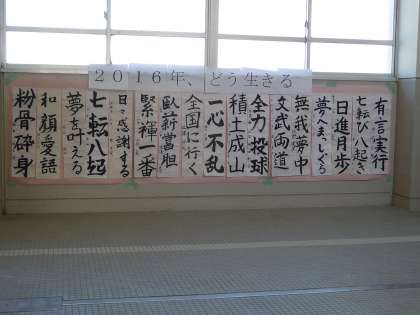 2016年、どう生きる
有言実行
七転び八起き
日進月歩
夢へまっしぐら
無我夢中
文武両道
全力投球
積土成山
一心不乱
全国に行く
臥薪嘗胆
緊褌一番
日々感謝する
七転八起
夢を叶える
和顔愛語
粉骨砕身